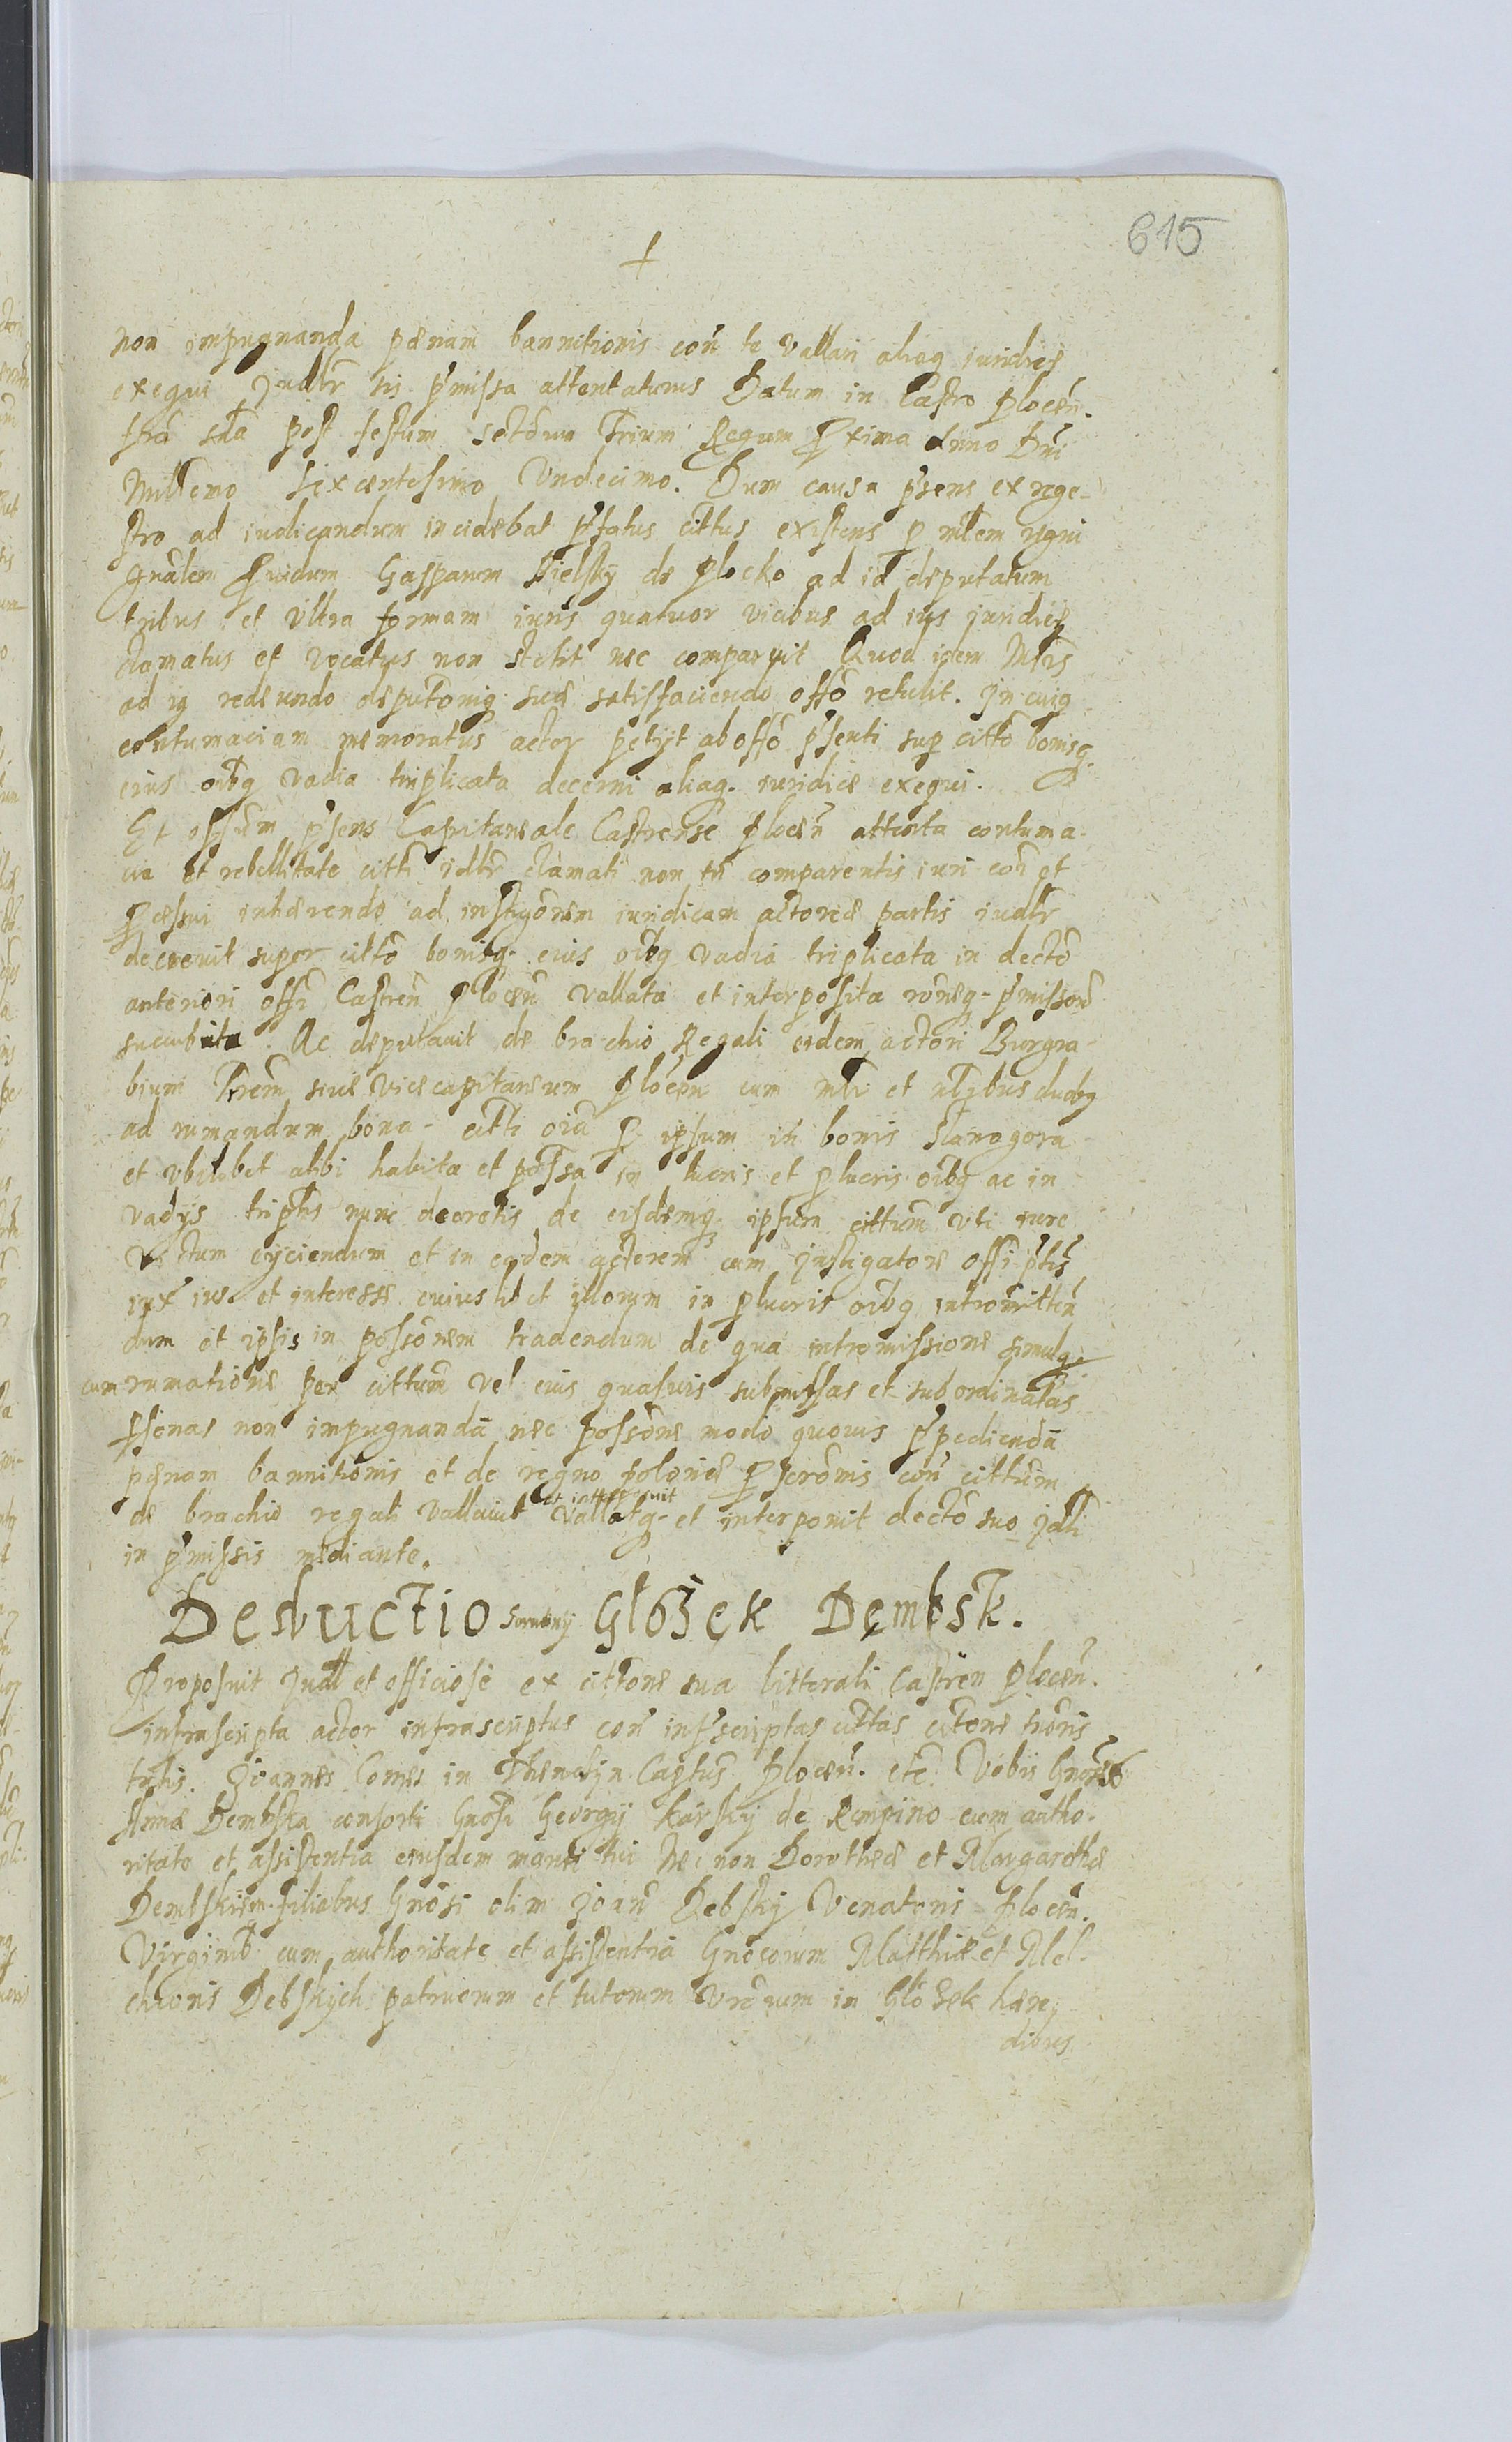 615
non impugnanda pænam bannitionis con̄ te vallari aliaq iuridicę
exequi Judlr̄ sis p̄missa attentaturus Datum in Castro plocen̄.
fr̄ia sc̄da post festum sctōrum Trium Regum proxima Anno Dn̄i
Millemo sixcentesimo Vndecimo. Dum causa p̄sens ex rege-
stro ad iudicandum incidebat p̄fatus cittus existens p mlem regni
gn̄alem providum Gasparum Bielsky de plocko ad id deputatum
tribus et vltra formam iuris quatuor vicibus ad ius iuridicę
clamatus et vocatus non stetit nec comparuit Quod idem Mrs
ad ią redeundo deputōniq suæ satisfaciendo offō retulit. In cuiq
contumaciam memoratus actor petijt ab offō p̄senti sup citto bonisq
eius oibq vadia triplicata decerni aliaq. iuridicæ exequi.
Et officium p̄sens Capitaneale Castrense plocen̄ attenta contuma-
cia et rebellitate citti idlr̄ clamati non tn̄ comparentis iuri coī et
processui inhærendo ad instigōnem iuridicam actoreæ partis iudlr̄
decrevit super citto bonisq. eius oibq vadia triplicata in dectō
anteriori offi Castren̄ plocen̄ vallata et interposita rōneq. p̄missorū
succubita. Ac deputavit de brachio Regali eidem actori Burgra-
bium Trem̄ siue vicecapitaneum plocen̄ cum mli et nlibus duobq
ad rumandum bona citti oia p ipsum in bonis Staragora
et vbilibet alibi habita et possa in lucris et p lucris oibq ac in
vadys triplis nunc decretis de eisdemq. ipsum cittum vti iure
victum eyciendum et in eydem actorem cum Instigatore offi p̄tis
iux ius et interesse cuiuslibet illorum in p lucris oibq intromitten̄
dum et ipsis in possōnem tradendum de qua intromissione simulq.
cum rumatione per cittum vel eius quasuis submissas et subordinatas
psonas non impugnandā nec possōne modo quouis p̄pediendā
pænam bannitionis et de regno poloniæ proscrōnis con̄ cittum
et interposuit
de brachio regali vallavit vallatq- et interponit dectō suo Jdli
in p̄missis mediante.
Deductio Glozek Dembsk.
Proposuit Judl et officiose ex cittone sua litterali Castren plocen̄.
infrascripta actor infrascriptus con̄ infrscriptas cittas citōne
talis. Joannes Comes in Thenczyn Captus plocen̄. etc Vobis Gnosæ
Annæ Dembska consorti Gnosi Georgij Karsky de Rempino cum autho-
ritate et assistentia eiusdem mariti tui Nec non Dorotheæ et Margarethæ
Dembskiem filiabus Gnōsi olim Joan̄ Debsky Venatoris plocen̄.
Virginib cum authoritate et assistentia Gnosorum Matthiæ et Mel-
chioris Debskych patruorum et tutorum vr̄orum in Glozek hære-
dibus